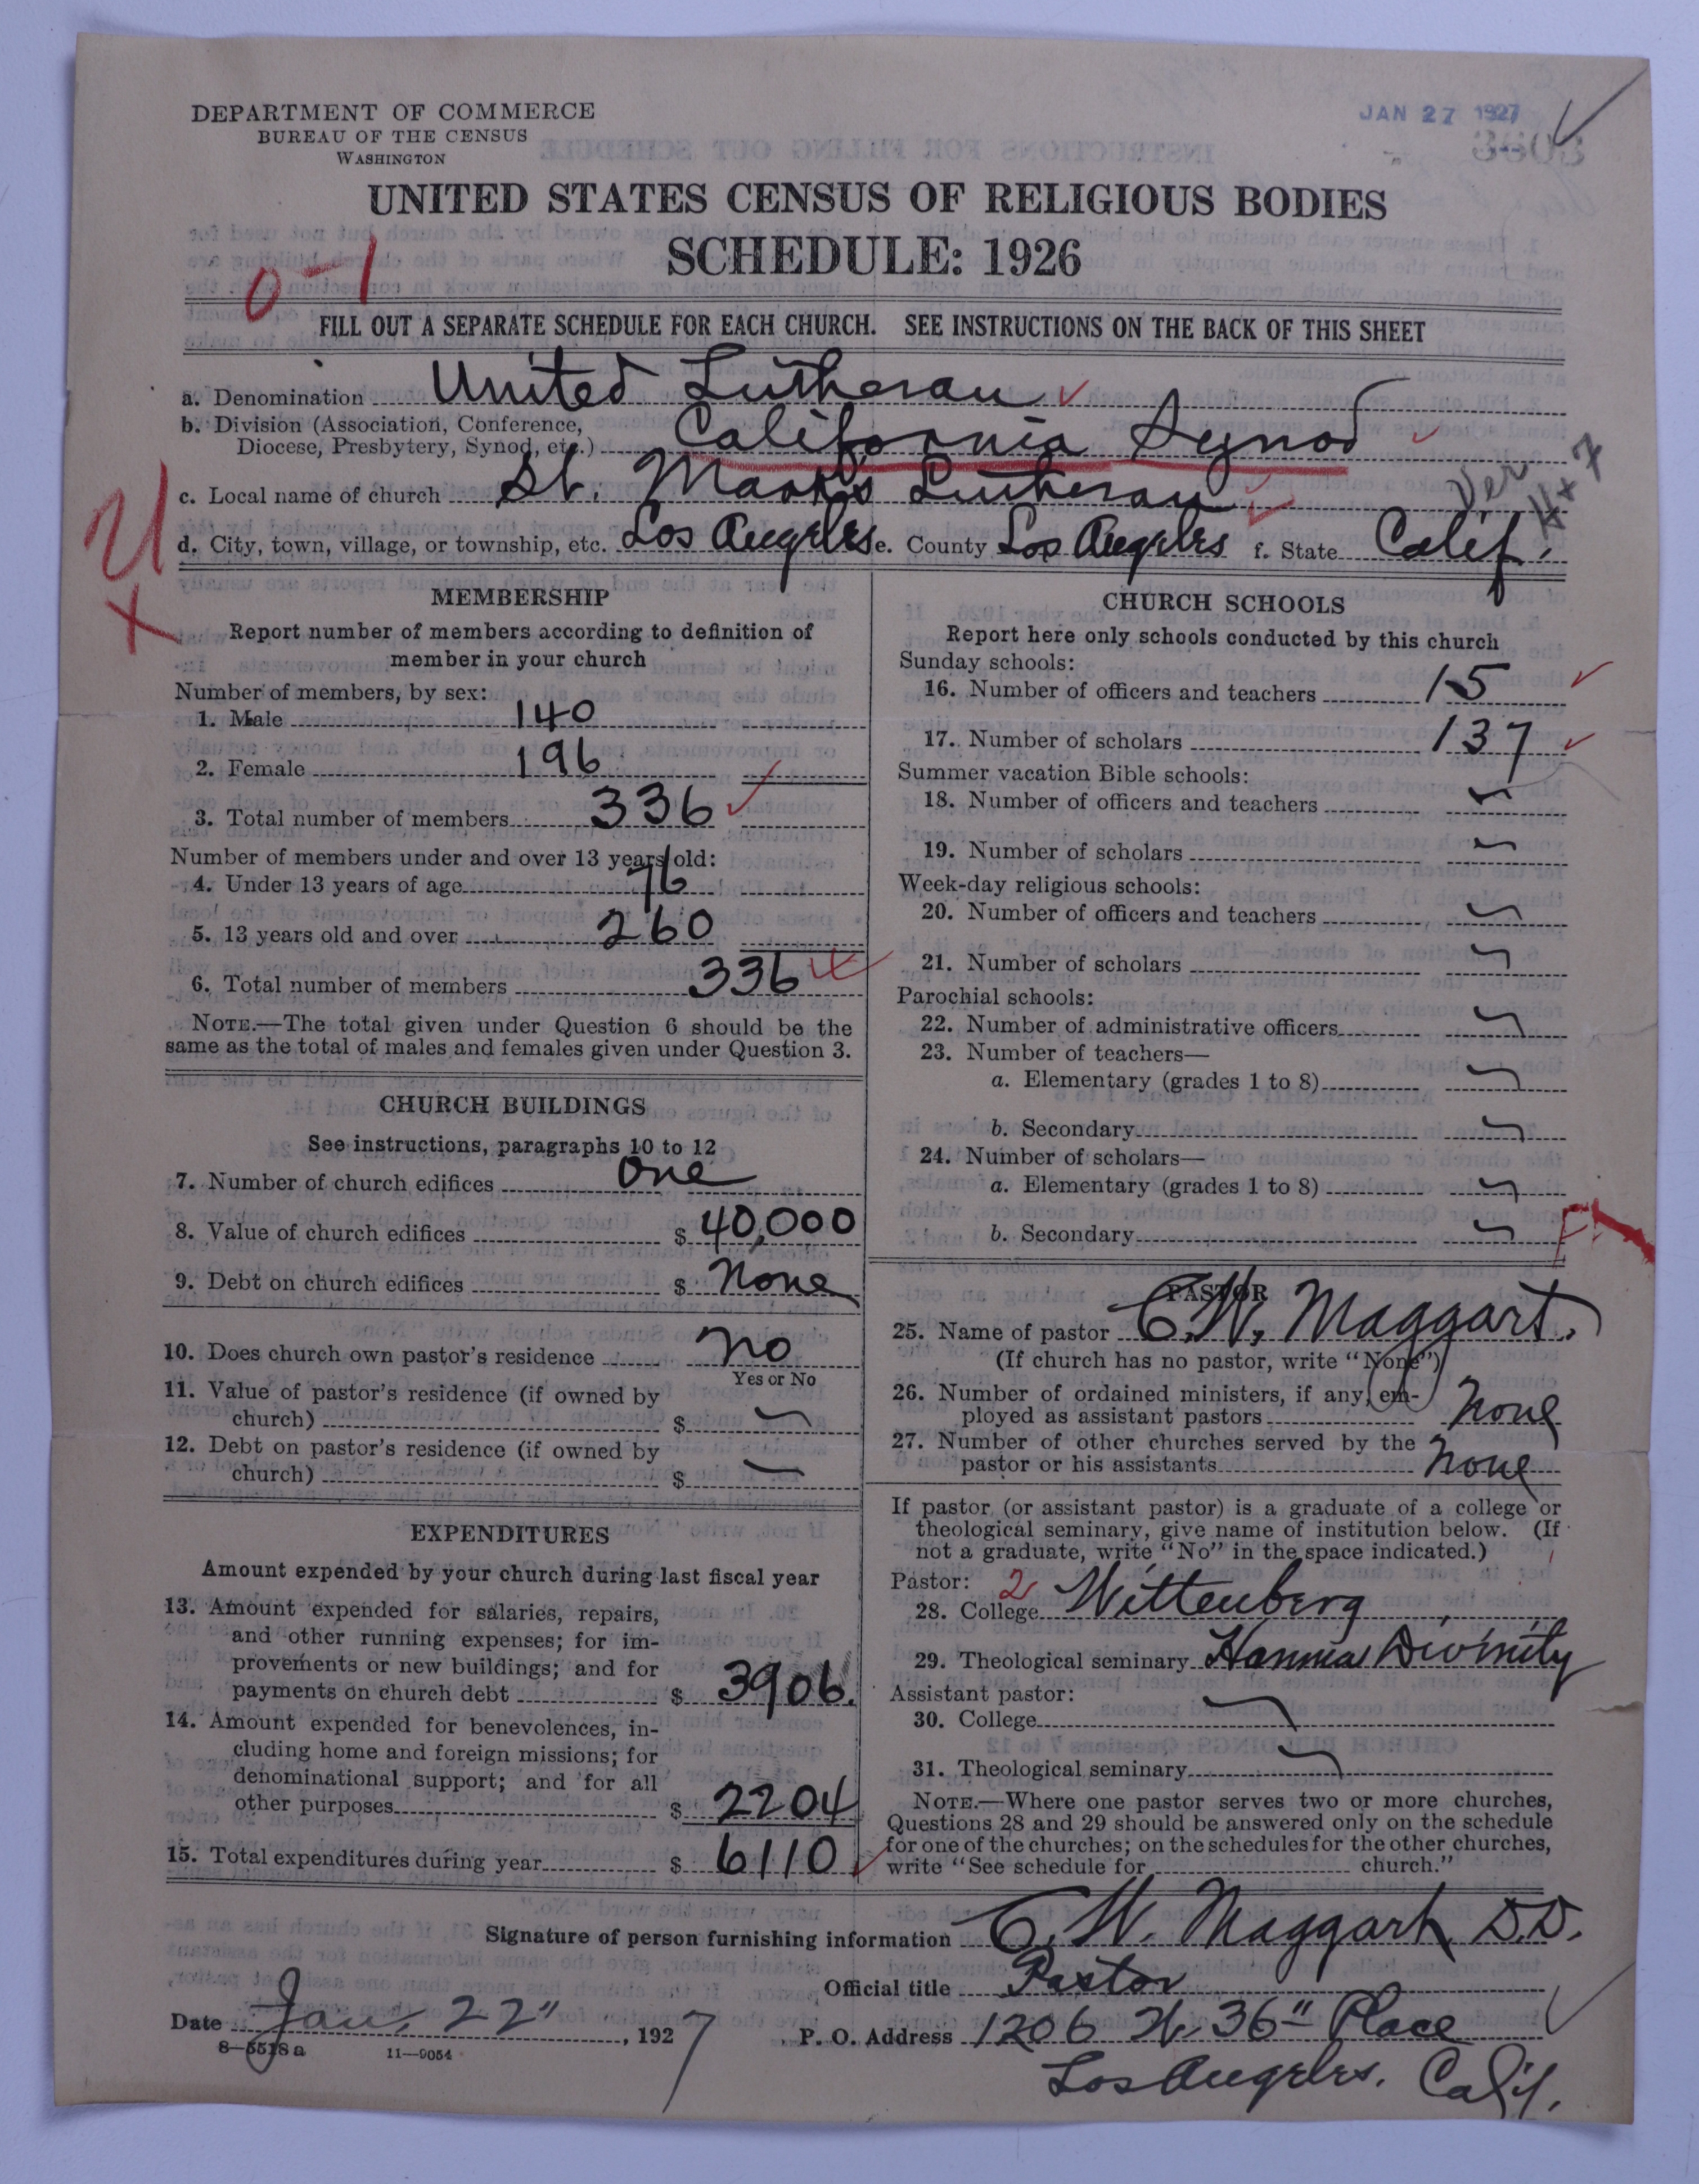 DEPARTMENT OF COMMERCE
BUREAU OF THE CENSUS
WASHINGTON
JAN 27 1927
UNITED STATES CENSUS OF RELIGIOUS BODIES
SCHEDULE: 1926
0-1
FILL OUT A SEPARATE SCHEDULE FOR EACH CHURCH. SEE INSTRUCTIONS ON THE BACK OF THIS SHEET
a. Denomination United Lutheran
b. Division (Association, Conference,
Diocese, Presbytery, Synod, etc.) California Synod
c. Local name of church St. Mark's Lutheran
d. City, town, village, or township, etc. Los Angeles e. County Los Angeles f. State Calif.
MEMBERSHIP
Report number of members according to definition of
member in your church
Number of members, by sex:
1. Male 140
2. Female 196
3. Total number of members 336
Number of members under and over 13 years old:
4. Under 13 years of age 76
5. 13 years old and over 260
6. Total number of members 336
NOTE.—The total given under Question 6 should be the
same as the total of males and females given under Question 3.
CHURCH BUILDINGS
See instructions, paragraphs 10 to 12
7. Number of church edifices One
8. Value of church edifices $ 40,000
9. Debt on church edifices $ None
10. Does church own pastor's residence No
Yes or No
11. Value of pastor's residence (if owned by
church) $
12. Debt on pastor's residence (if owned by
church) $
EXPENDITURES
Amount expended by your church during last fiscal year
13. Amount expended for salaries, repairs,
and other running expenses; for im-
provements or new buildings; and for
payments on church debt $ 3906.
14. Amount expended for benevolences, in-
cluding home and foreign missions; for
denominational support; and for all
other purposes $ 2204
15. Total expenditures during year $ 6110
CHURCH SCHOOLS
Report here only schools conducted by this church
Sunday schools:
16. Number of officers and teachers 15
17. Number of scholars 137
Summer vacation Bible schools:
18. Number of officers and teachers
19. Number of scholars
Week-day religious schools:
20. Number of officers and teachers
21. Number of scholars
Parochial schools:
22. Number of administrative officers
23. Number of teachers—
a. Elementary (grades 1 to 8)
b. Secondary
24. Number of scholars—
a. Elementary (grades 1 to 8)
b. Secondary
PASTOR
25. Name of pastor C. W. Maggart.
(If church has no pastor, write "None")
26. Number of ordained ministers, if any, em-
ployed as assistant pastors None
27. Number of other churches served by the
pastor or his assistants None
If pastor (or assistant pastor) is a graduate of a college or
theological seminary, give name of institution below. (If
not a graduate, write "No" in the space indicated.)
Pastor: 2
28. College Wittenberg
29. Theological seminary Hamma Divinity
Assistant pastor:
30. College
31. Theological seminary
NOTE.—Where one pastor serves two or more churches,
Questions 28 and 29 should be answered only on the schedule
for one of the churches; on the schedules for the other churches,
write "See schedule for church."
Signature of person furnishing information C. W. Maggart D.D.
Official title Pastor
Date Jan. 22", 1927
P. O. Address 1206 W. 36" Place
Los Angeles. Calif.
8-5518a 11—9054